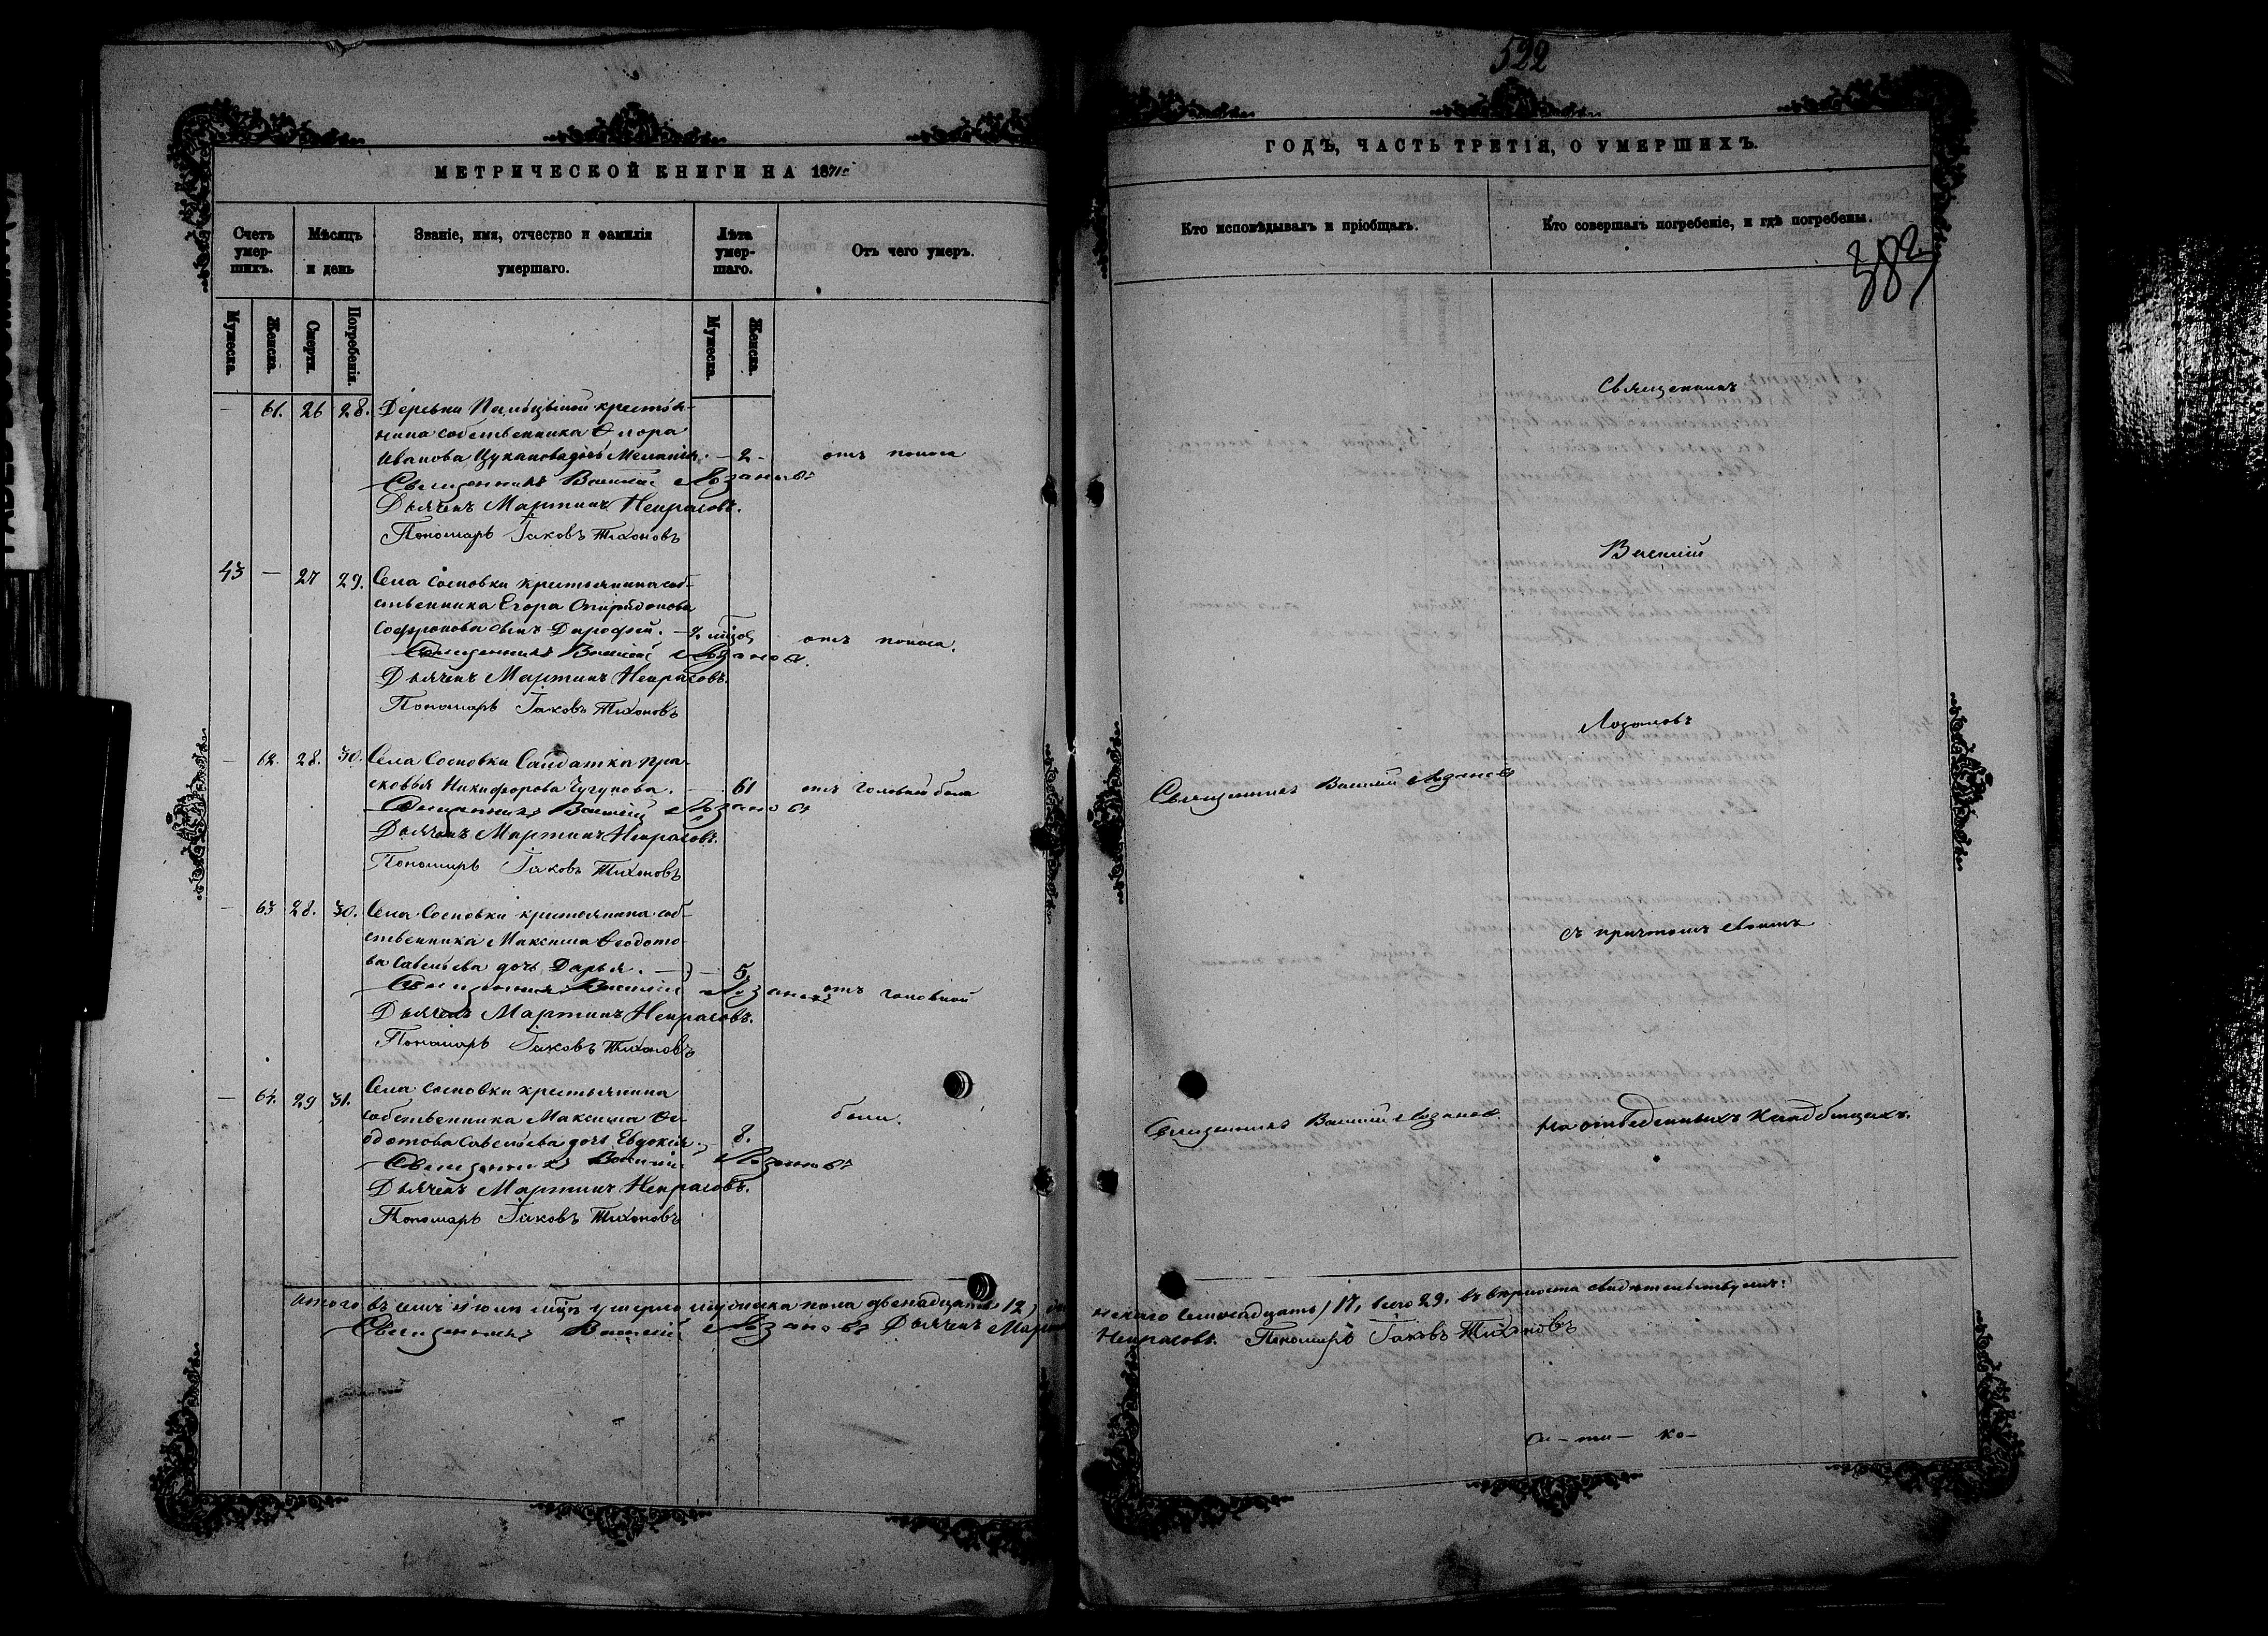 МЕТРИЧЕСКОЙ КНИГИ НА 1871
Счетъ умер-шихъ.
Мѣсяцъ и день
Званіе, имя, отчество и фамилія умершаго.
Лѣта умер-шаго.
Отъ чего умеръ.
Мужеска.
Женска.
Смерти.
Погребенія.
Мужеска.
Женска.
— 61. 26 28. Деревни крестья-
нина собственника Ѳ
Иванова Цуканова дочь Меланія. — 2 - отъ поноса
Священникъ Василій Лозановъ
Дьячекъ Мартинъ Некрасовъ.
Пономарь Іаковъ Тихоновъ
43 — 27 29. Села Сосновки крестьянина соб-
ственника Егора Спиридонова
Софронова сынъ Дорофей. — отъ поноса.
Священникъ Василій Лозановъ.
Дьячекъ Мартинъ Некрасовъ.
Пономарь Іаковъ Тихоновъ
— 62. 28. 30. Села Сосновки Салдатка Пра-
сковья Никифорова Чугунова. 61 отъ головной боли
Священникъ Василій Лозановъ
Дьячекъ Мартинъ Некрасовъ.
Пономарь Іаковъ Тихоновъ
— 63 28. 30. Села Сосновки крестьянина соб-
ственника Максима Ѳеодото-
ва Савельева дочь Дарья. — 5.
Священникъ Василій Лозановъ отъ головной
Дьячекъ Мартинъ Некрасовъ.
Пономарь Іаковъ Тихоновъ
— 64. 29 31. Села Сосновки крестьянина
собственника Максима Ѳе- боли.
одотова Савельева дочь Евдокия. — 8.
Священникъ Василій Лозановъ
Дьячекъ Мартинъ Некрасовъ.
Пономарь Іаковъ Тихоновъ
Итого въ семъ умерло мужеска пола двенадцать 12,
Священникъ Василій Лозановъ Дьячекъ
522
ГОДЪ, ЧАСТЬ ТРЕТІЯ, О УМЕРШИХЪ.
Кто исповѣдывалъ и пріобщалъ.
Кто совершалъ погребеніе, и гдѣ погребены.
382
Священникъ
Василій
Лозановъ
Священникъ Василій Лозановъ
съ причтомъ своимъ
Священникъ Василій Лозановъ. На отведенныхъ кладбищахъ.
семнадцать / 17, всего 29. въ верности свидѣтельствуемъ:
Некрасовъ. Пономарь Іаковъ Тихоновъ